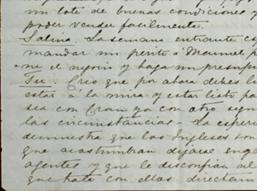 un lote de buenas condiciones y
poder vender facilmente.
Salina. La semana entrante es
mandar un perito a Manuel p
me el negocio y haga un presupu
Tu. Creo que por ahora debes
estar a la mira y estar listo pa
sea con Gran ya con otro
las circunstancias. La esperi
demuestra que los Ingleses son
que acostumbran dejarse eng
agentes y que le desconfian al
que trate con ellos directam